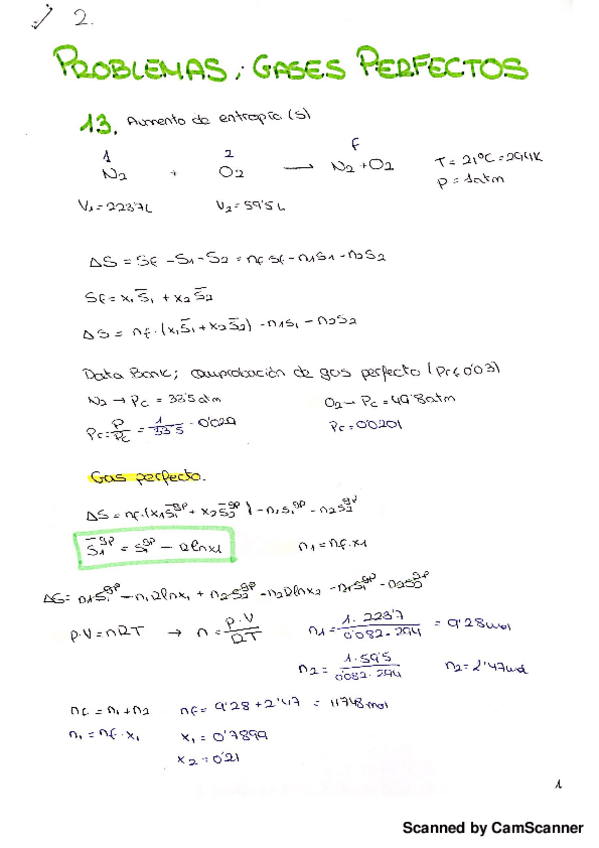 2.
PROBLEMAS; GASES PERFECTOS
13. Aumento de entropía (S)
1 2 f
N2 + O2 → N2+O2 T = 21ºC = 294K
P = 1atm
V1 = 223'7L V2 = 59'5L
ΔS = Sf - S1 - S2 = nf sf - n1s1 - n2s2
Sf = x1 S̄1 + x2 S̄2
ΔS = nf·(x1S̄1 + x2S̄2) - n1s1 - n2s2
Data Bank; comprobación de gas perfecto (Pr<0'03)
N2 → Pc = 33'5 atm O2 → Pc = 49'8atm
Pr = P/Pc = 1/33'5 = 0'029 Pr = 0'0201
Gas perfecto.
ΔS = nf·(x1S̄1^gp + x2S̄2^gp) - n1s1^gp - n2s2^gp
S̄1^gp = s1^gp - R ln x1 n1 = nf·x1
ΔS = n1s1^gp - n1Rlnx1 + n2s2^gp - n2Rlnx2 - n1s1^gp - n2s2^gp
P·V = nRT → n = P·V/RT n1 = 1·223'7/0'082·294 = 9'28mol
n2 = 1·59'5/0'082·294 n2 = 2'47mol
nf = n1 + n2 nf = 9'28 + 2'47 = 11'748mol
n1 = nf·x1 x1 = 0'7899
x2 = 0'21
1
Scanned by CamScanner